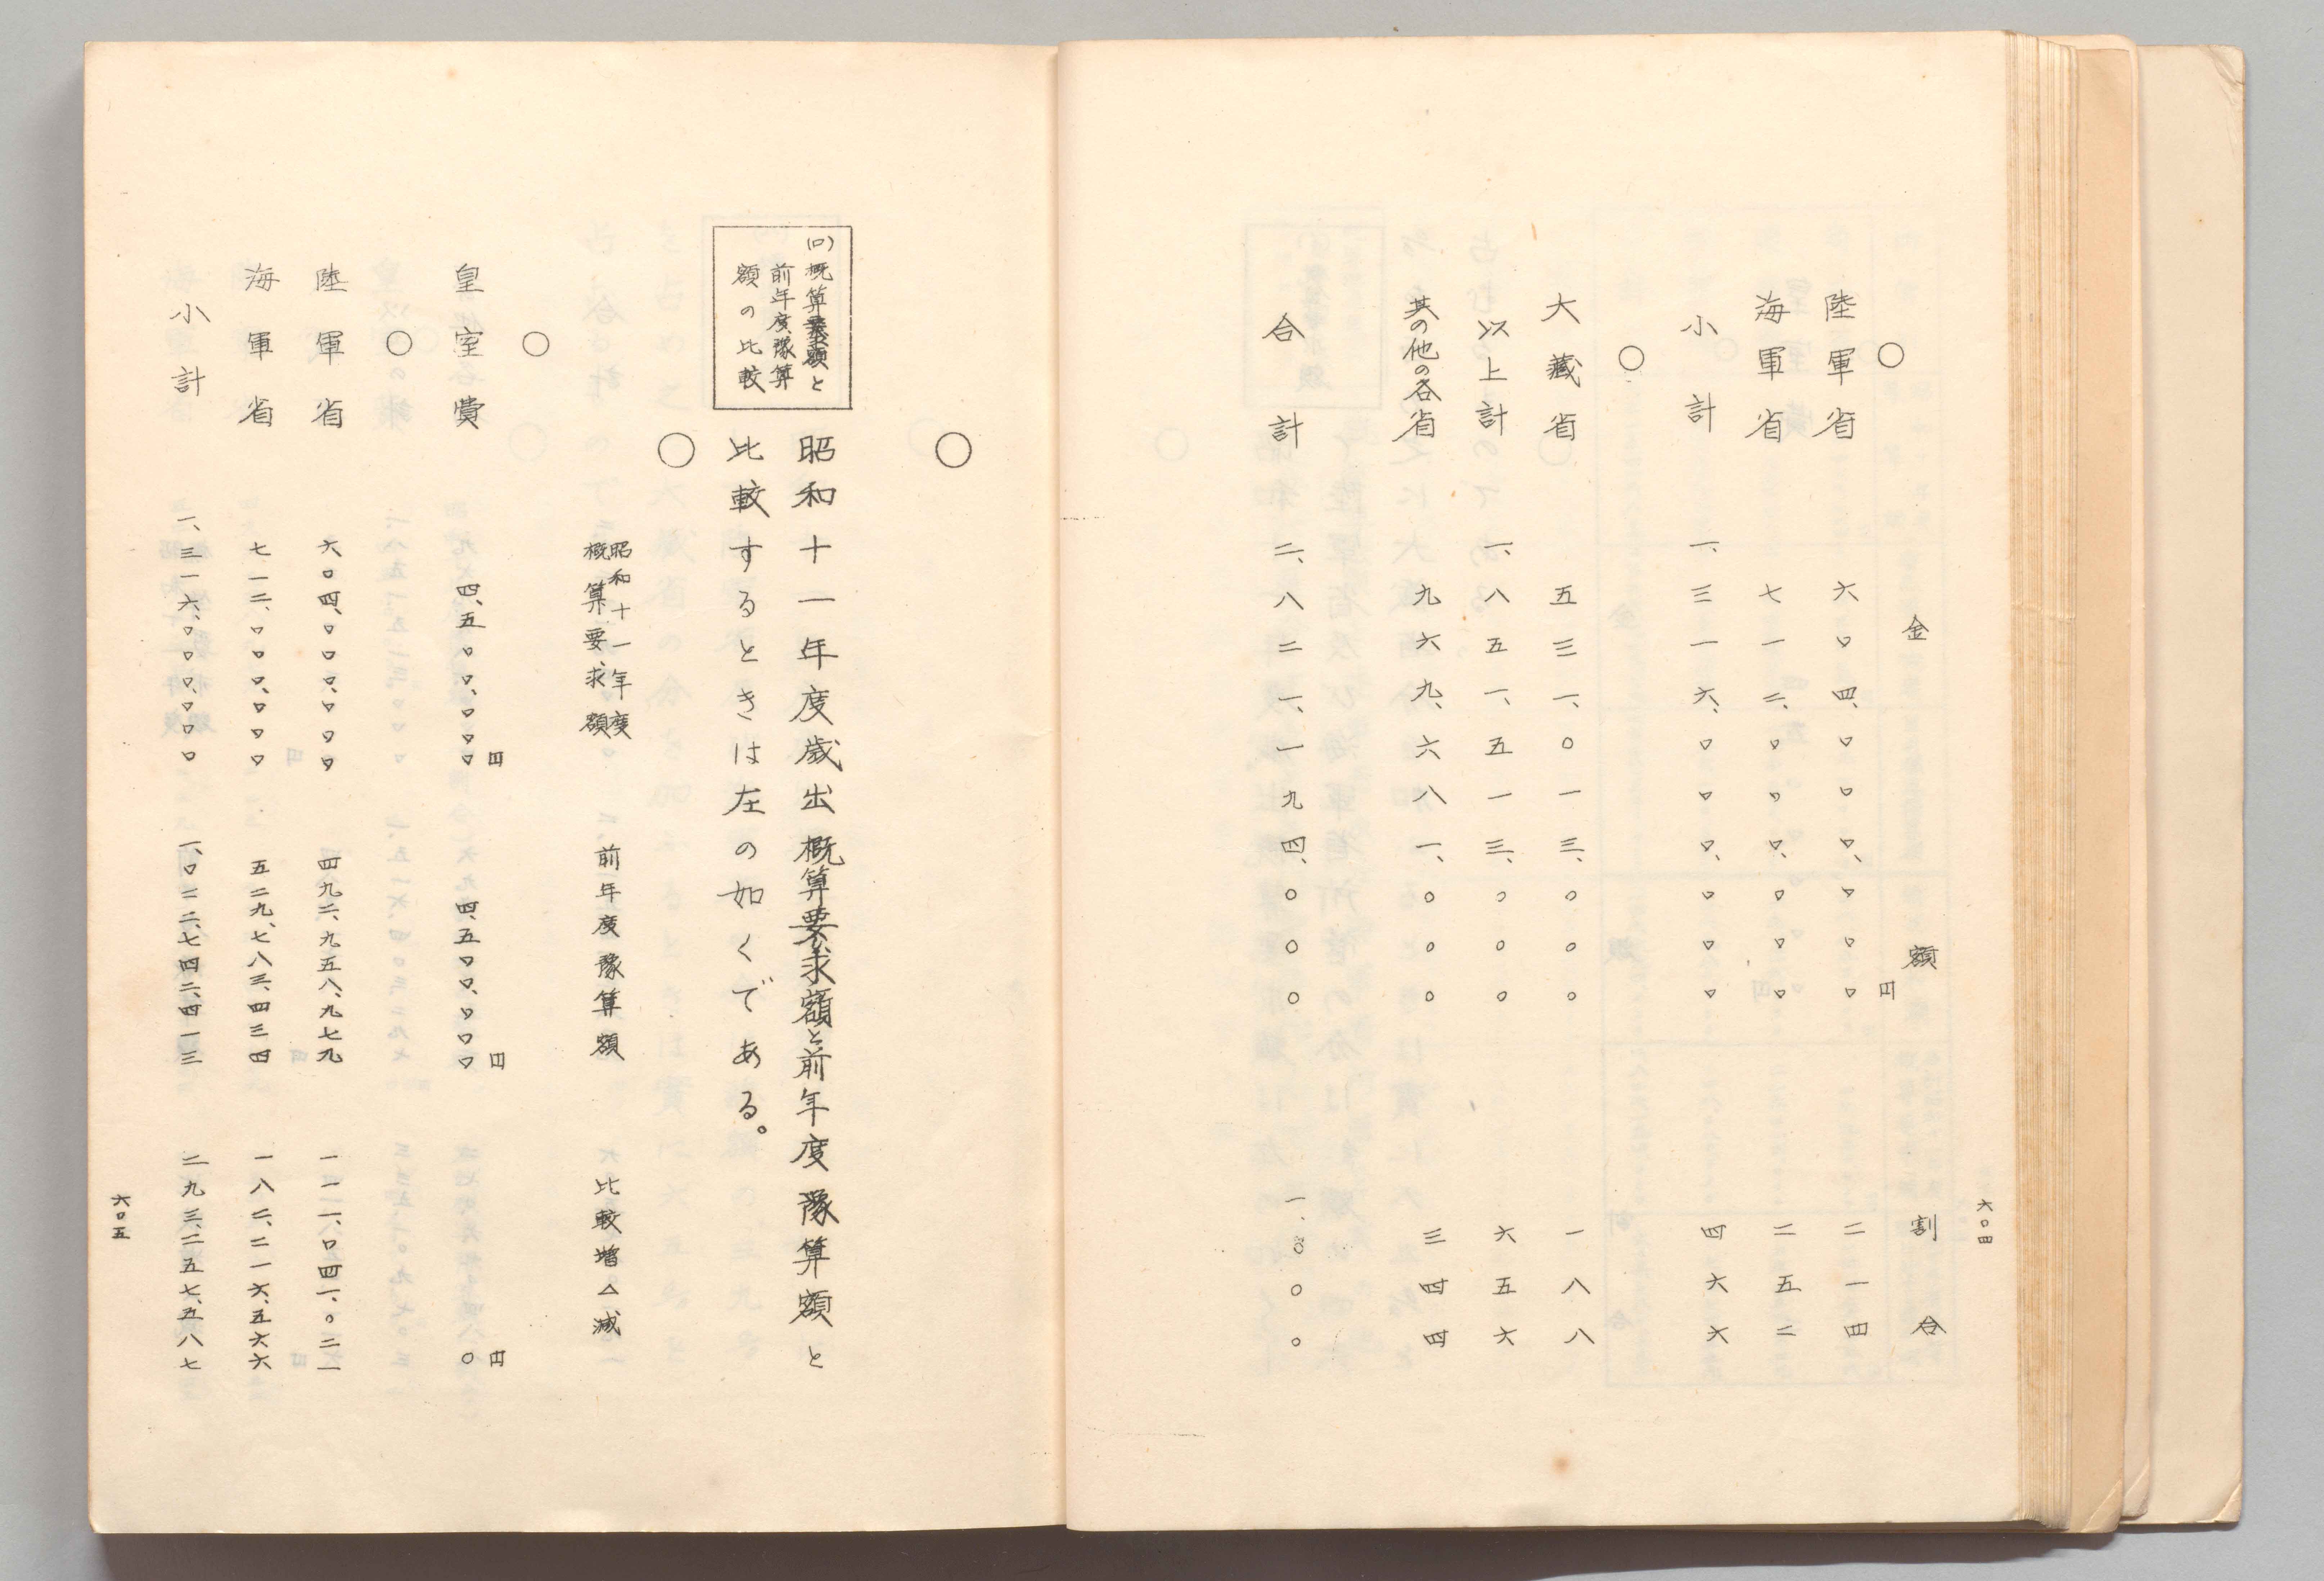 六〇四
金額 割合
○ 円
陸軍省 六〇四、〇〇〇、〇〇〇 二一四
海軍省 七一二、〇〇〇、〇〇〇 二五二
小計 一、三一六、〇〇〇、〇〇〇 四六六
○
大藏省 五三一、〇一三、〇〇〇 一八八
以上計 一、八五一、五一三、〇〇〇 六五六
其の他の各省 九六九、六八一、〇〇〇 三四四
合計 二、八二一、一九四、〇〇〇 一、〇〇〇
○
(ロ)概算要求額と
前年度豫算
額の比較
昭和十一年度歳出概算要求額と前年度豫算額と
比較するときは左の如くである。
○
昭和十一年度
概算要求額 前年度豫算額 比較増△減
○
円 円 円
皇室費 四、五〇〇、〇〇〇 四、五〇〇、〇〇〇 〇
○
陸軍省 六〇四、〇〇〇、〇〇〇 四九二、九五八、九七九 一一一、〇四一、〇二一
海軍省 七一二、〇〇〇、〇〇〇 五二九、七八三、四三四 一八二、二一六、五六六
小計 一、三一六、〇〇〇、〇〇〇 一、〇二二、七四二、四一三 二九三、二五七、五八七
六〇五